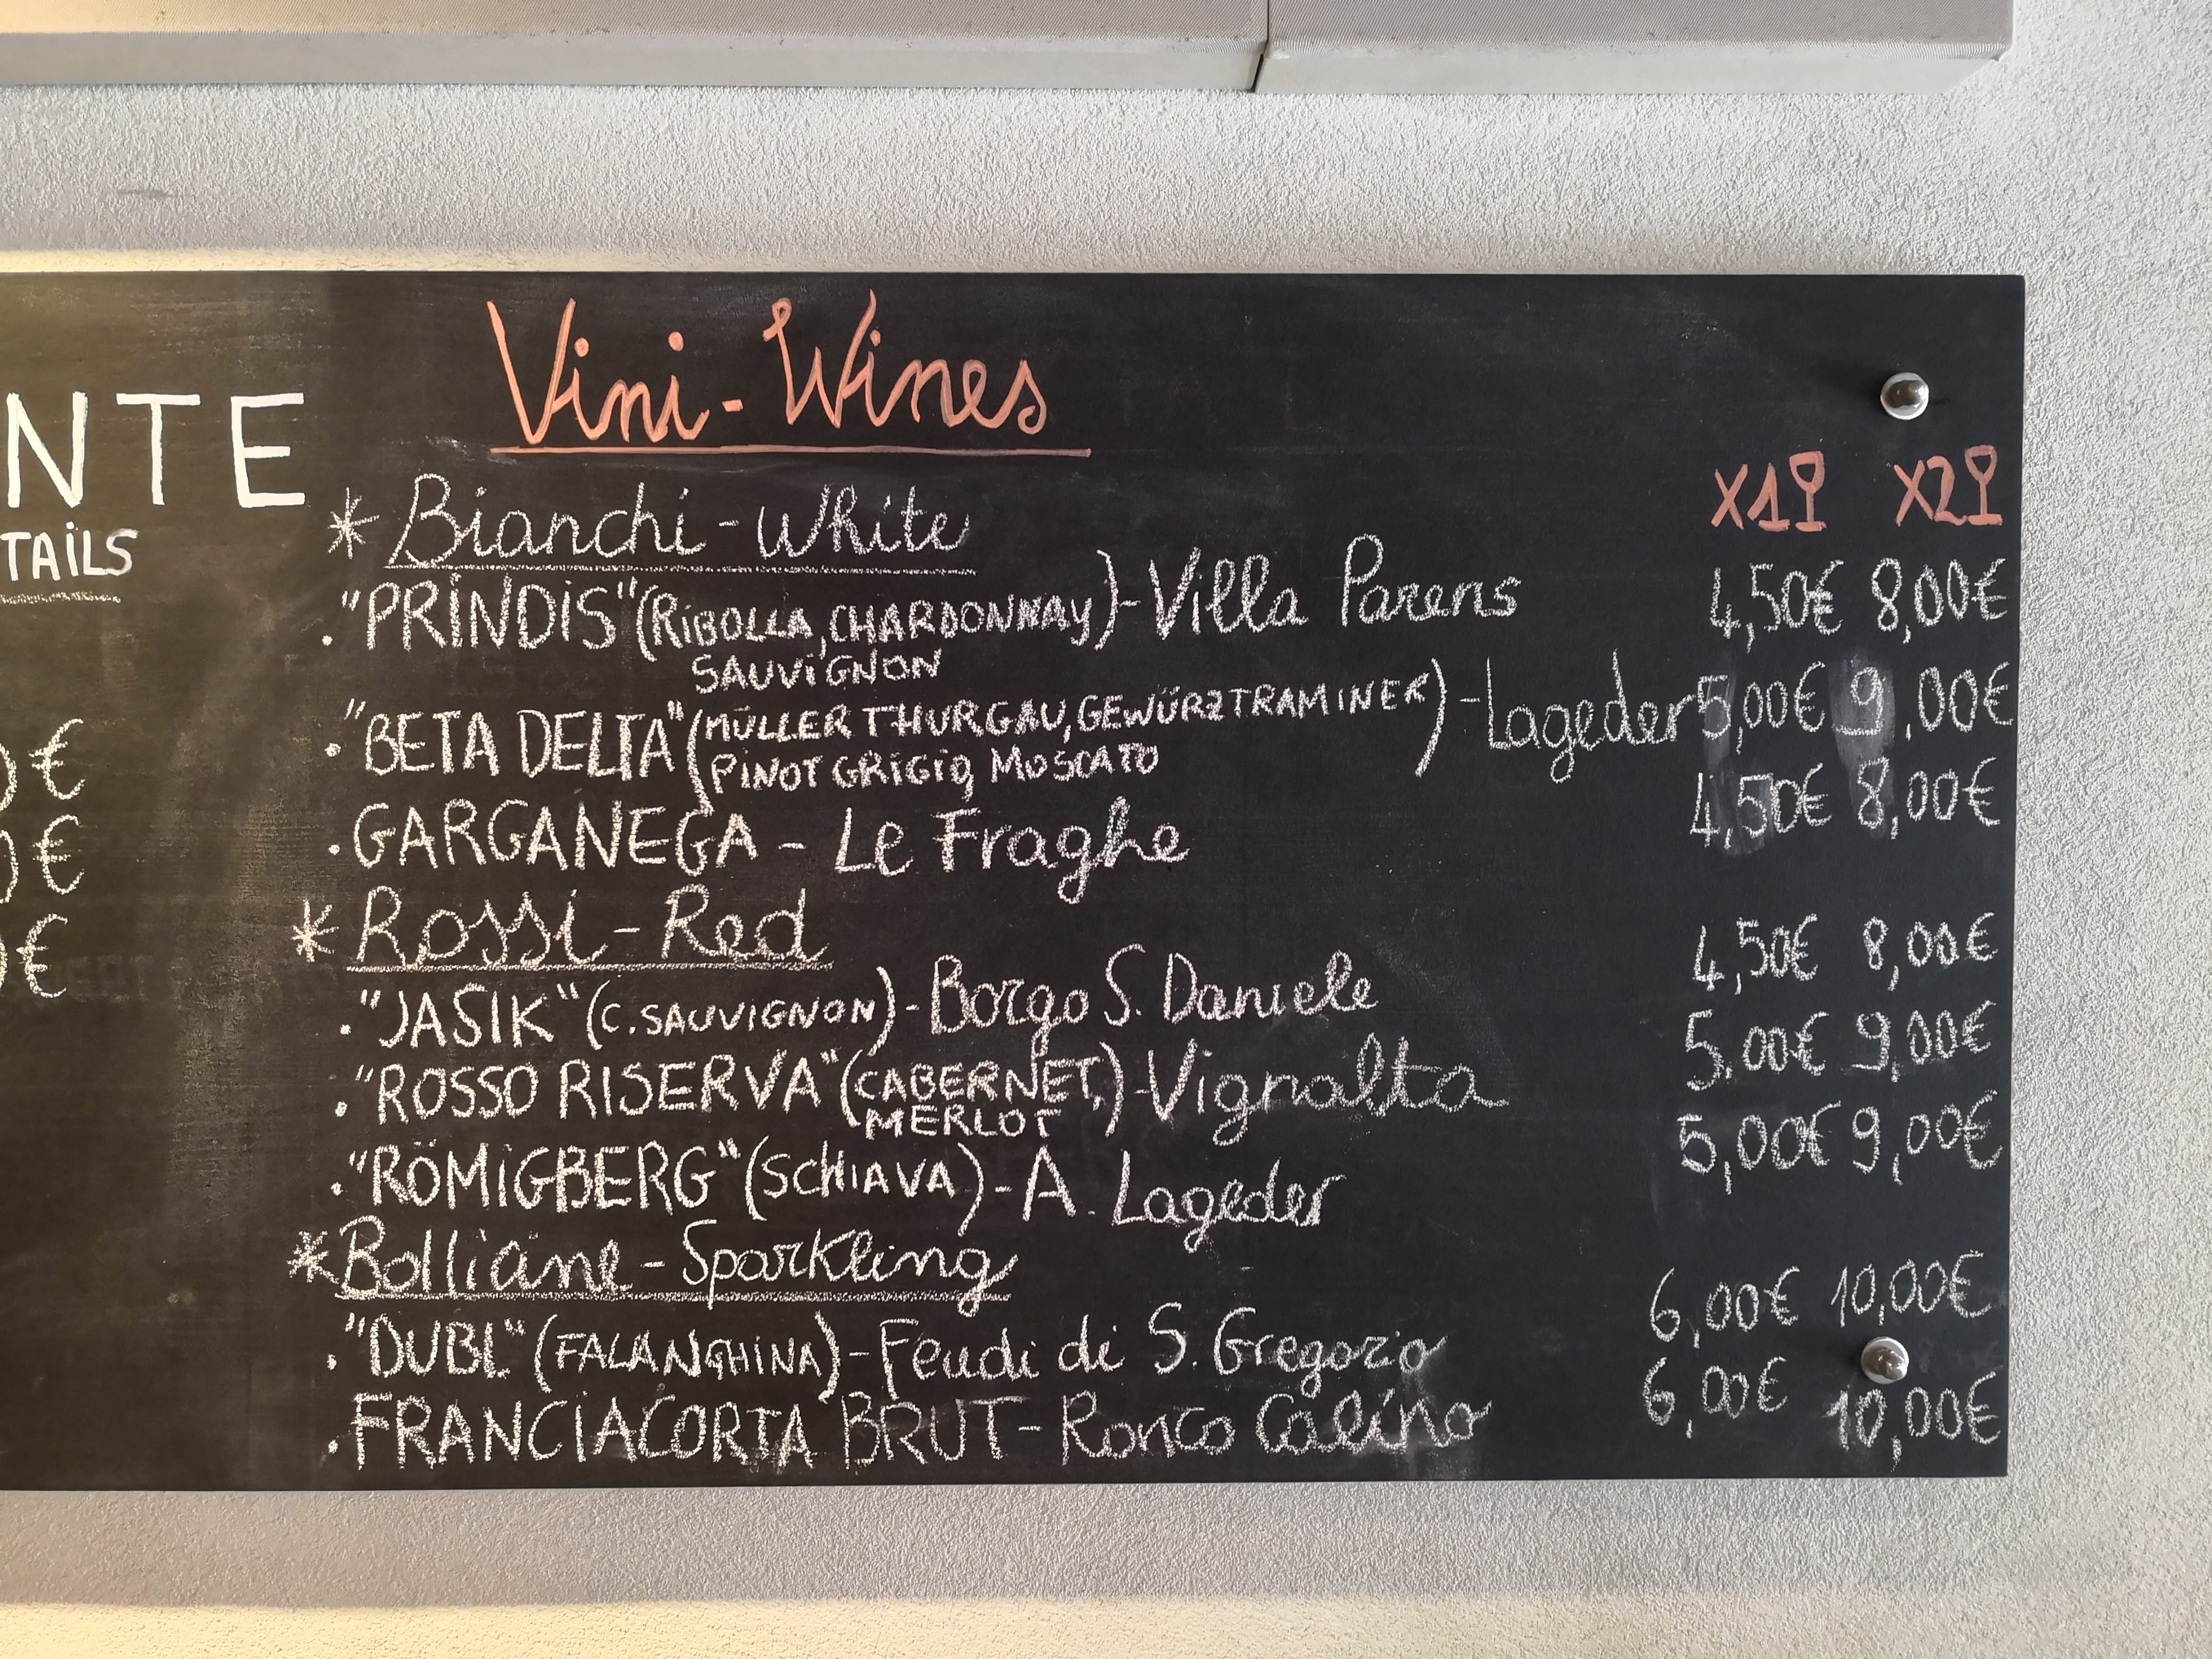 Vini - Wines
NTE
TAILS
X1 X2
* Bianchi - White
. "PRINDIS" (RIBOLLA, CHARDONNAY) - Villa Parens 4,50€ 8,00€
SAUVIGNON
. "BETA DELTA" (MÜLLER THURGAU, GEWÜRZTRAMINER) - Lageder 5,00€ 9,00€
PINOT GRIGIO, MOSCATO
. GARGANEGA - Le Fraghe 4,50€ 8,00€
* Rossi - Red
. "JASIK" (C. SAUVIGNON) - Borgo S. Daniele 4,50€ 8,00€
. "ROSSO RISERVA" (CABERNET, MERLOT) - Vignalta 5,00€ 9,00€
. "RÖMIGBERG" (SCHIAVA) - A. Lageder 5,00€ 9,00€
* Bolliane - Sparkling
. "DUBL" (FALANGHINA) - Feudi di S. Gregorio 6,00€ 10,00€
. FRANCIACORTA BRUT - Ronco Calino 6,00€ 10,00€
0€
0€
0€